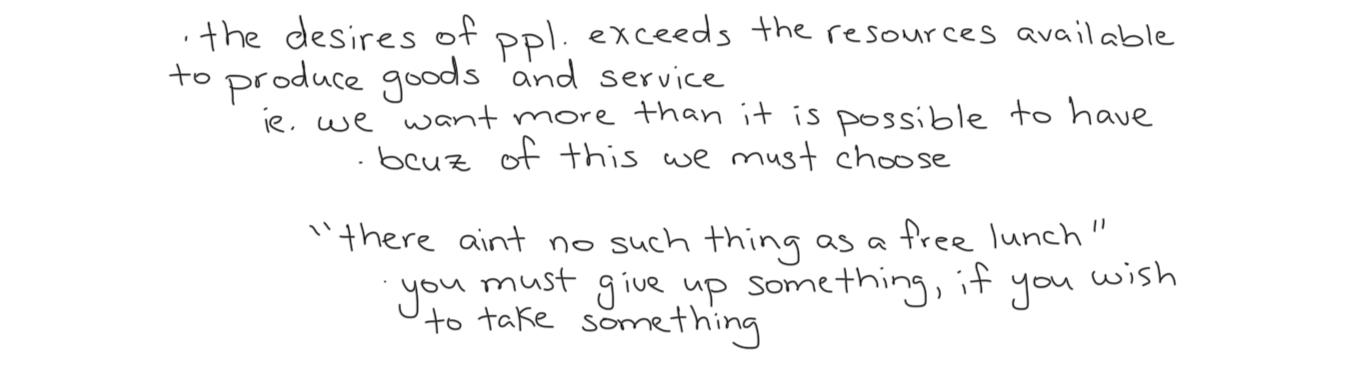 · the desires of ppl. exceeds the resources available
to produce goods and service
ie. we want more than it is possible to have
· bcuz of this we must choose
"there aint no such thing as a free lunch"
· you must give up something, if you wish
to take something